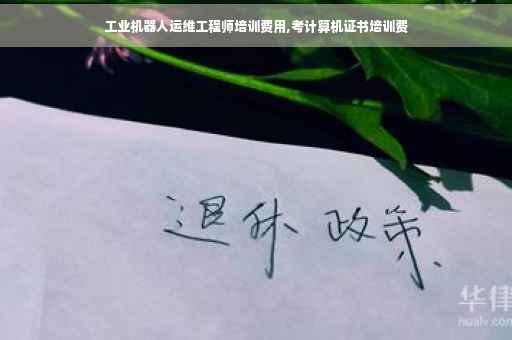 工业机器人运维工程师培训费用,考计算机证书培训费
退休 政策
华律
hualv.com